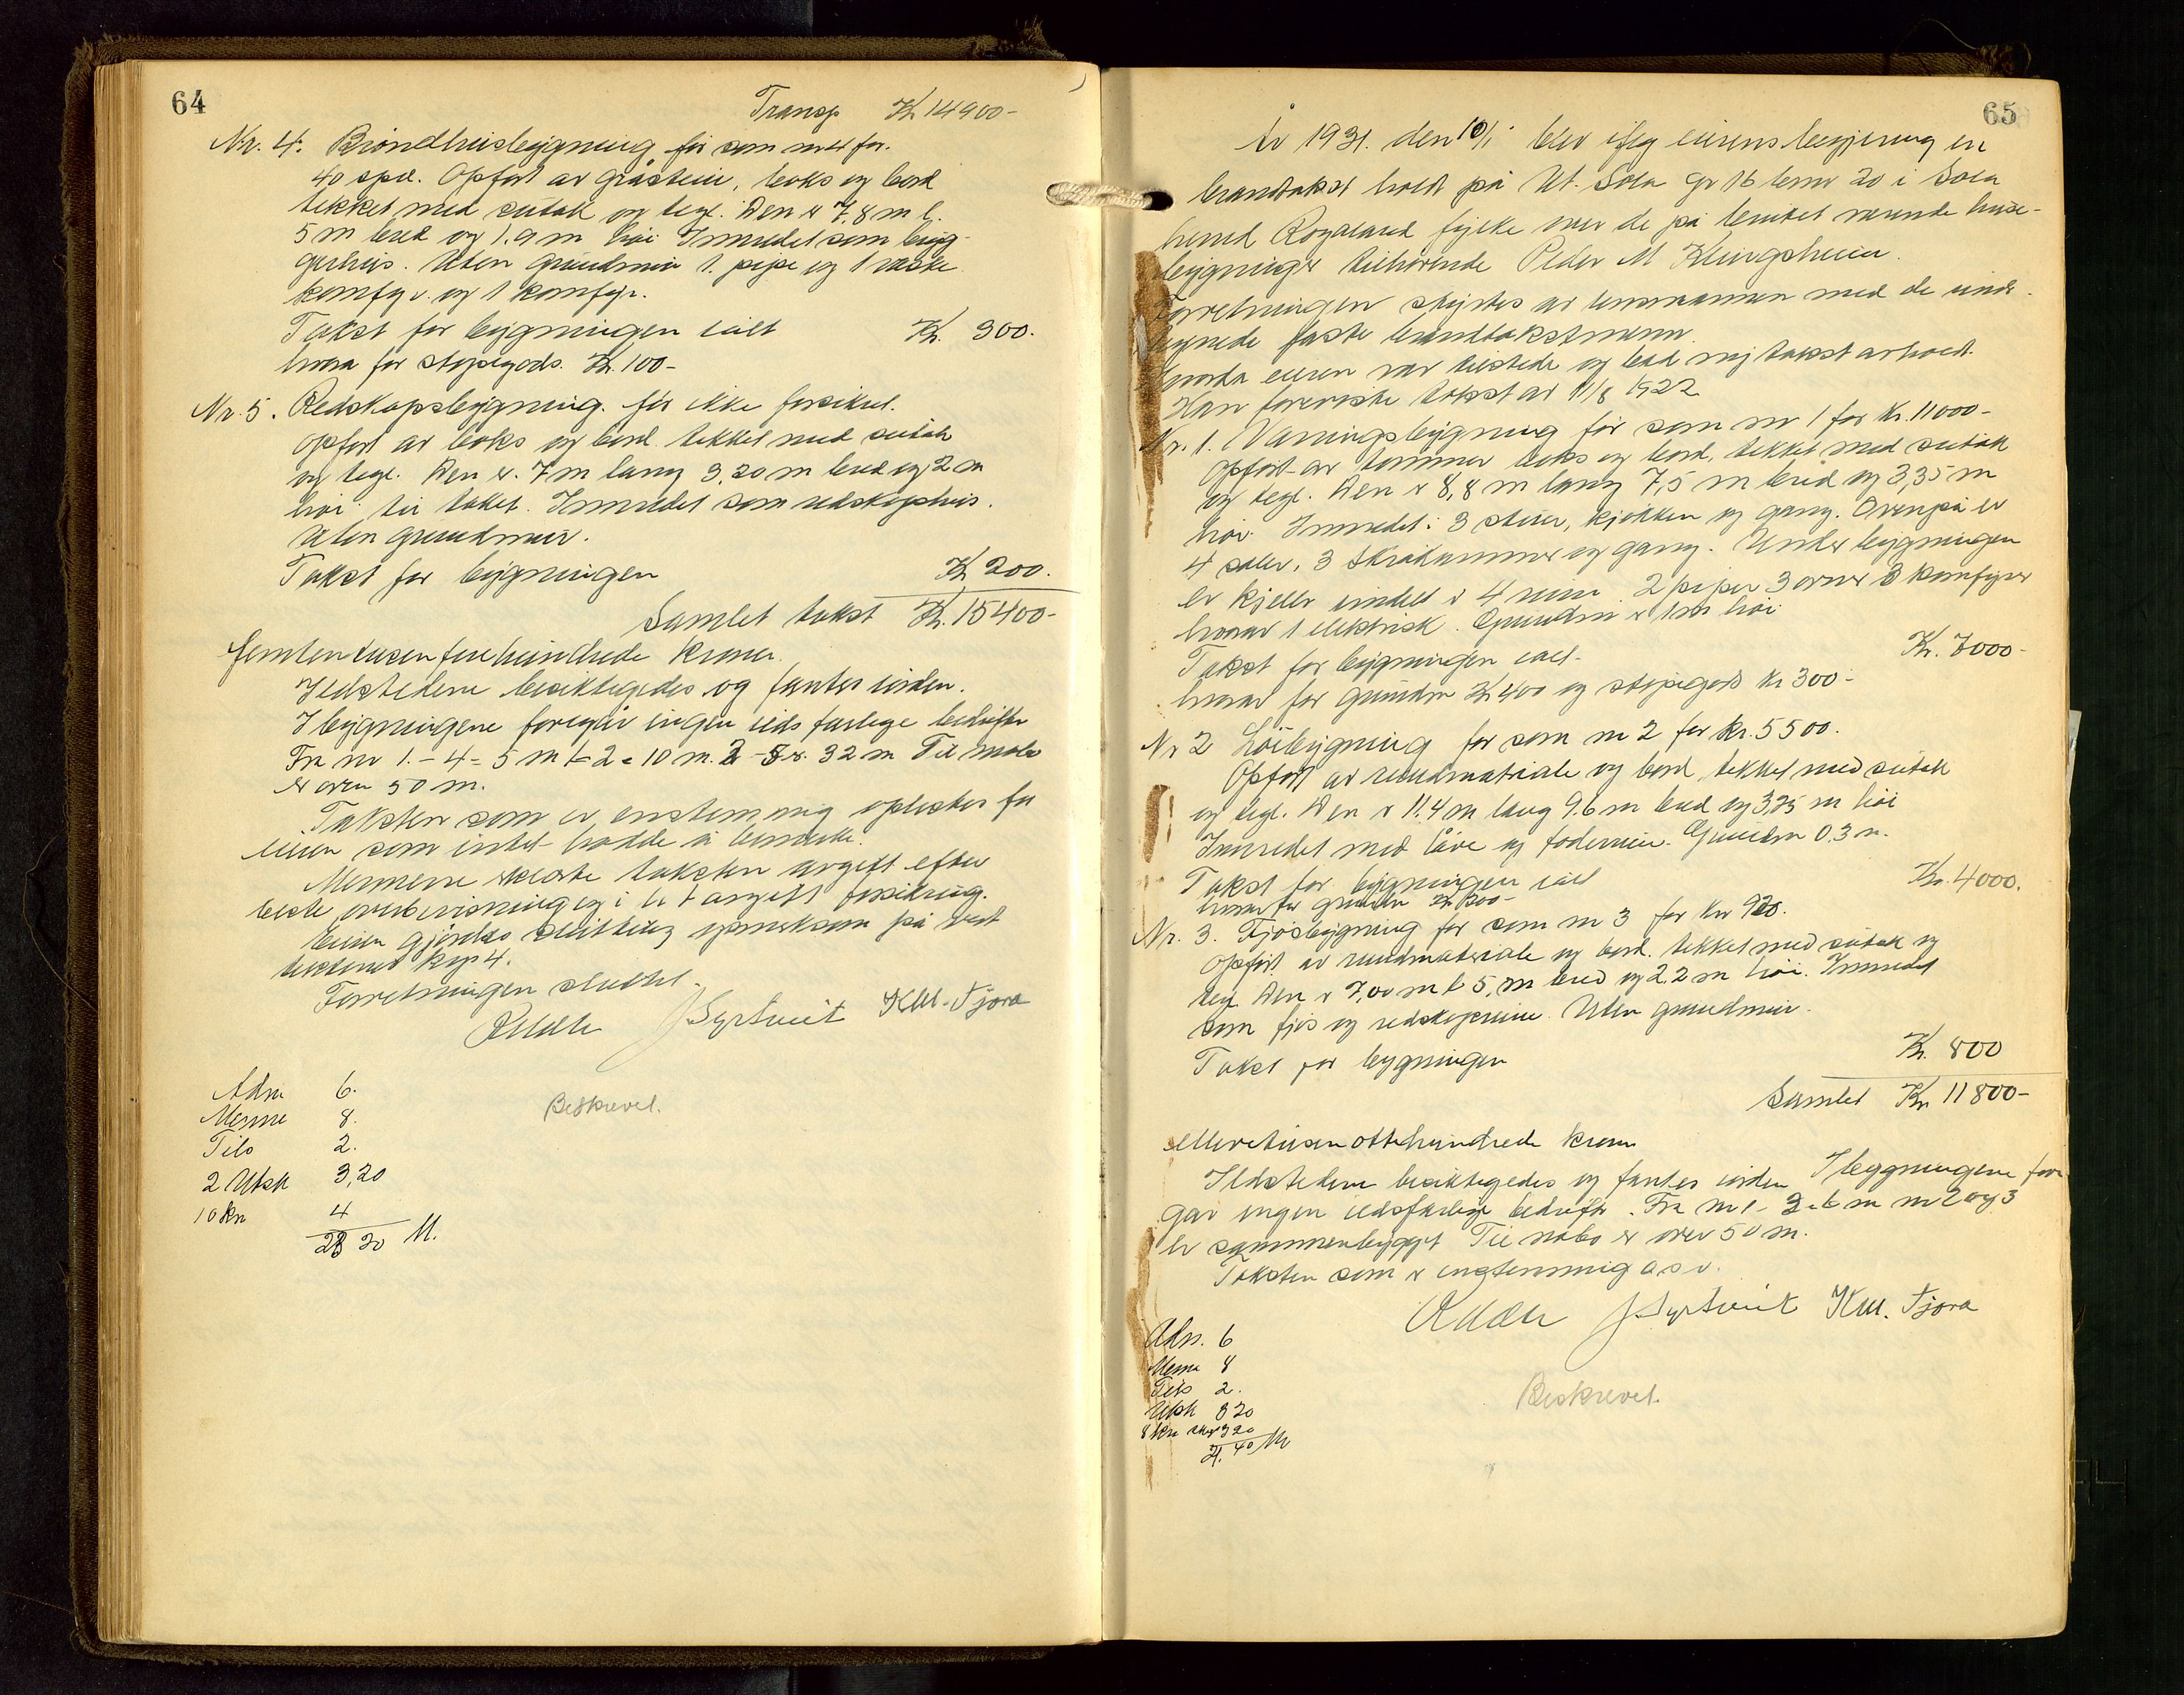 64
Transp Kr 14900-
Nr. 4. Bröndhusbygning för som nr 4 for.
40 spd. Opfört av gråstein, boks og bord
tekket med sutak og tegl. Den er 7,8 m l.
5 m bred og 1.9 m höi Innredet som bryg-
gerhus. Uten grundmur 1. pipe og 1 vaske
komfyr. og 1 komfyr.
Takst for bygningen ialt Kr. 300.
hvorav for støpegods. Kr. 100-
Nr. 5. Redskapsbygning. för ikke forsikret.
Opfört av boks og bord. tekket med sutak
og tegl. Den er. 7 m lang 3,20 m bred og 2 m
höi til taket. Innredet som redskaphus.
Uten grundmur.
Takst for bygningen Kr 200.
Samlet takst Kr. 15400-
femtentusenfirehundrede kroner.
Ildstedene besiktigedes og fantes iorden.
I bygningene foregår ingen ildsfarlige bedrifter
Fra nr 1. - 4 = 5 m 1-2 = 10 m. 2 - 5 er. 32 m Til nabo
er over 50 m.
Taksten som er enstemmig oplestes for
eieren som intet hadde å bemerke.
Mennene erklærte taksten avgitt efter
beste overbevisning og i h t avgitt forsikring.
Eieren gjordes skriftlig opmerksom på
kap 4.
Forretningen sluttet.
J Syrtveit KM. Tjora
Adm 6.
Menne 8.
Tils 2.
2 Utsk 3,20
10 km 4
23 20 M.
Beskrevet.
65
År 1931. den 10/1 blev ifølg eierens begjering en
brandtakst holdt på Ut. Sola gr 16 bnr 20 i Sola
herred Rogaland fylke over de på bruket værende huse-
bygninger tilhørende Peder M Klingsheim.
Forretningen styrtes av lensmannen med de under-
tegnede faste brandtakstmenn.
eieren var tilstede og bad ny takst avholdt.
Han foreviste takst av 11/8 1922
Nr. 1. Våningsbygning för som nr 1 for Kr. 11000-
Opfört av tømmer boks og bord, tekket med sutak
og tegl. Den er 8,8 m lang 7,5 m bred og 3,35 m
höi. Innredet: 3 stuer, kjøkken og gang. Ovenpå er
4 saler, 3 skråkammer og gang. Under bygningen
er kjeller inndelt i 4 rum 2 piper 3 ovner 3 komfyrer
hvorav 1 elektrisk. Grundm er 1 m höi
Takst for bygningen ialt- Kr. 7000-
hvorav for grundm Kr 400 og støpegods kr 300-
Nr 2 Löebygning for som nr 2 for kr. 5500.
Opfört av rundmateriale og bord, tekket med sutak
og tegl. Den er 11.4 m lang 9.6 m bred og 3,75 m höi
Innredet med låve og foderrum. Grundm 0,3 m.
Takst for bygningen ialt Kr. 4000.
hvorav for grundm Kr 200-
Nr. 3. Fjösbygning for som nr 3 for Kr 920.
Opfört av rundmateriale og bord. tekket med sutak og
tegl. Den er 7,00 m l 5, m bred og 2,2 m höi. Innredet
som fjös og redskaprum. Uten grundmur.
Takst for bygningen Kr. 800
Samlet Kr 11800-
ellevetusenottehundrede kroner
Ildstedene besiktigedes og fantes iorden I bygningene fore
går ingen ildsfarlige bedrifter. Fra nr 1- 2 = 6 m nr 2 og 3
er sammenbygget Til nabo er over 50 m.
Taksten som er enstemmig o s v.
J Syrtveit KM. Tjora
Adm. 6
Menne 8
Tils 2.
Utsk
8 km 3 20
21. 40 M
Beskrevet.